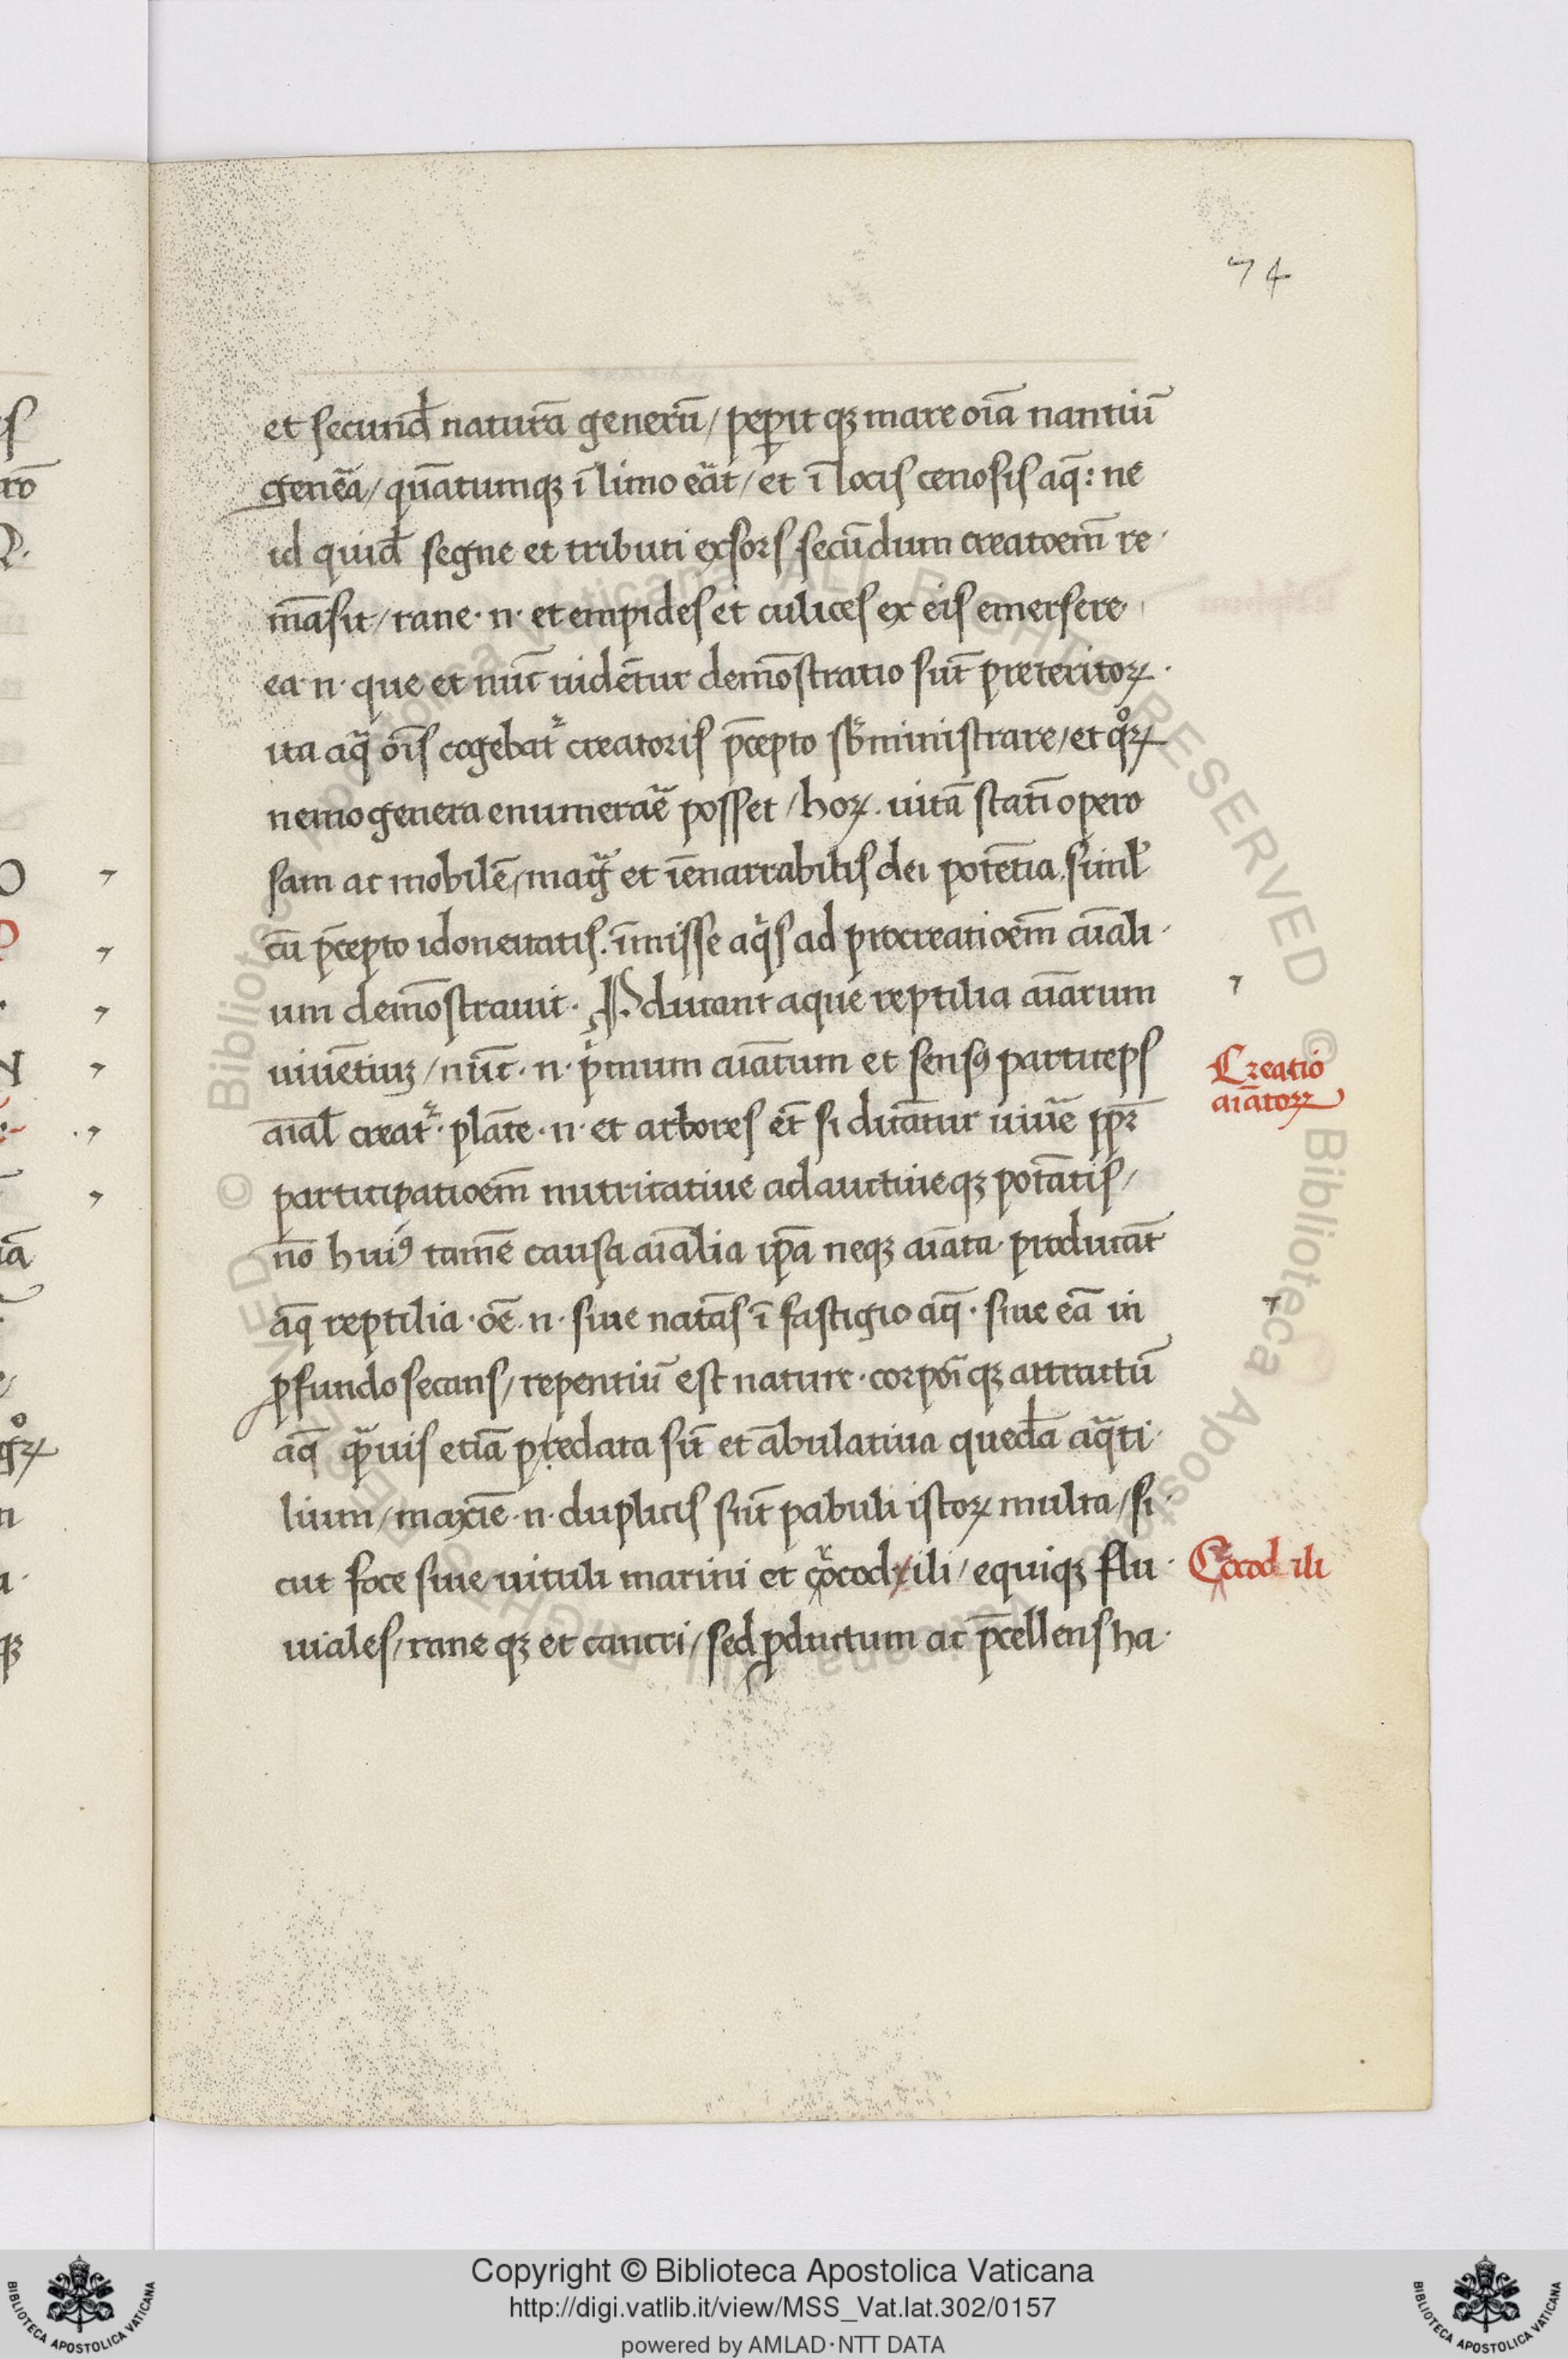 74
et secund̄ naturā generū / peꝑit qꝫ mare oīa nantiū
genēa / quātumqꝫ ī limo eāt / et ī locis cenosis aq̄: ne
id quid̄ segne et tributi exsors secūdum creatoem̄ re·
māsit / rane · n · et empides et culices ex eis emersere
ea · n · que et nūc uidētur demōstratio sūt preteritoꝝ ·
ita aq̄ ōis cogebat᷑ creatoris p̄cepto sb̄ministrare / et qͦꝝ
nemo genera enumerāe posset / hoꝝ . uitā statī opero
sam ac mobilē / mag᷑ et īenarrabilis dei potētia simł
cū p̄cepto idoneitatis . īmisse aqⁱs ad procreatioem̄ aīali·
um demōstrauit · Ꝓducant aque reptilia aīarum
uiuētiuꝫ / nūc · n · pⁱmum aīatum et sensꝯ particeps
aīal creat᷑ · plāte · n · et arbores ēt si dicātur uiuē ꝓpt̄
participatioem̄ nutritatiue adauctiueqꝫ potātis /
nō huiꝯ tamē causa aīalia ip̄a neqꝫ aīata · producāt
aq̄ reptilia · oē · n · siue natās ī fastigio aq̄ · siue eā in
ꝓfundo secans / repentiū est nature · corporīqꝫ attractū
aq̄ q̄uis etiā predata sūt et ābulatiua quedā aq̄ti·
lium / maxīe · n · duplicis sūt pabuli istoꝝ multa / si·
cut foce siue uituli marini et cͬocodili / equiqꝫ flu·
uiales / rane qꝫ et cancri / sed ꝓductum ac p̄cellens ha·
Creatio
aīatoꝝ
Cͬocodili
Copyright © Biblioteca Apostolica Vaticana
http://digi.vatlib.it/view/MSS_Vat.lat.302/0157
powered by AMLAD·NTT DATA
BIBLIOTECA APOSTOLICA VATICANA
BIBLIOTECA APOSTOLICA VATICANA